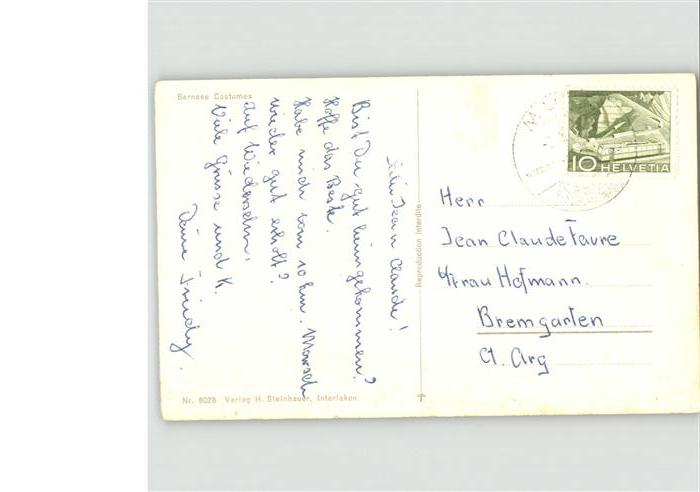 Bernese Costumes
Jean Claude!
Bist Du gut heimgekommen?
Hoffe das Beste.
Habe mich vom 10 km. Marsch
wieder gut erholt?
Auf Wiedersehn.
Viele Grüsse und K.
Deine Friedy.
Nr. 8028 Verlag H. Steinhauer, Interlaken
Reproduction interdite
10 HELVETIA
Herr
Jean Claude Favre
Frau Hofmann.
Bremgarten
Ct. Arg